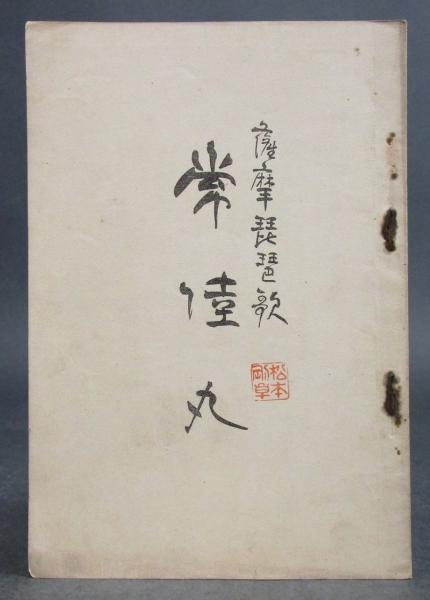 薩摩琵琶歌
常陸丸
松本